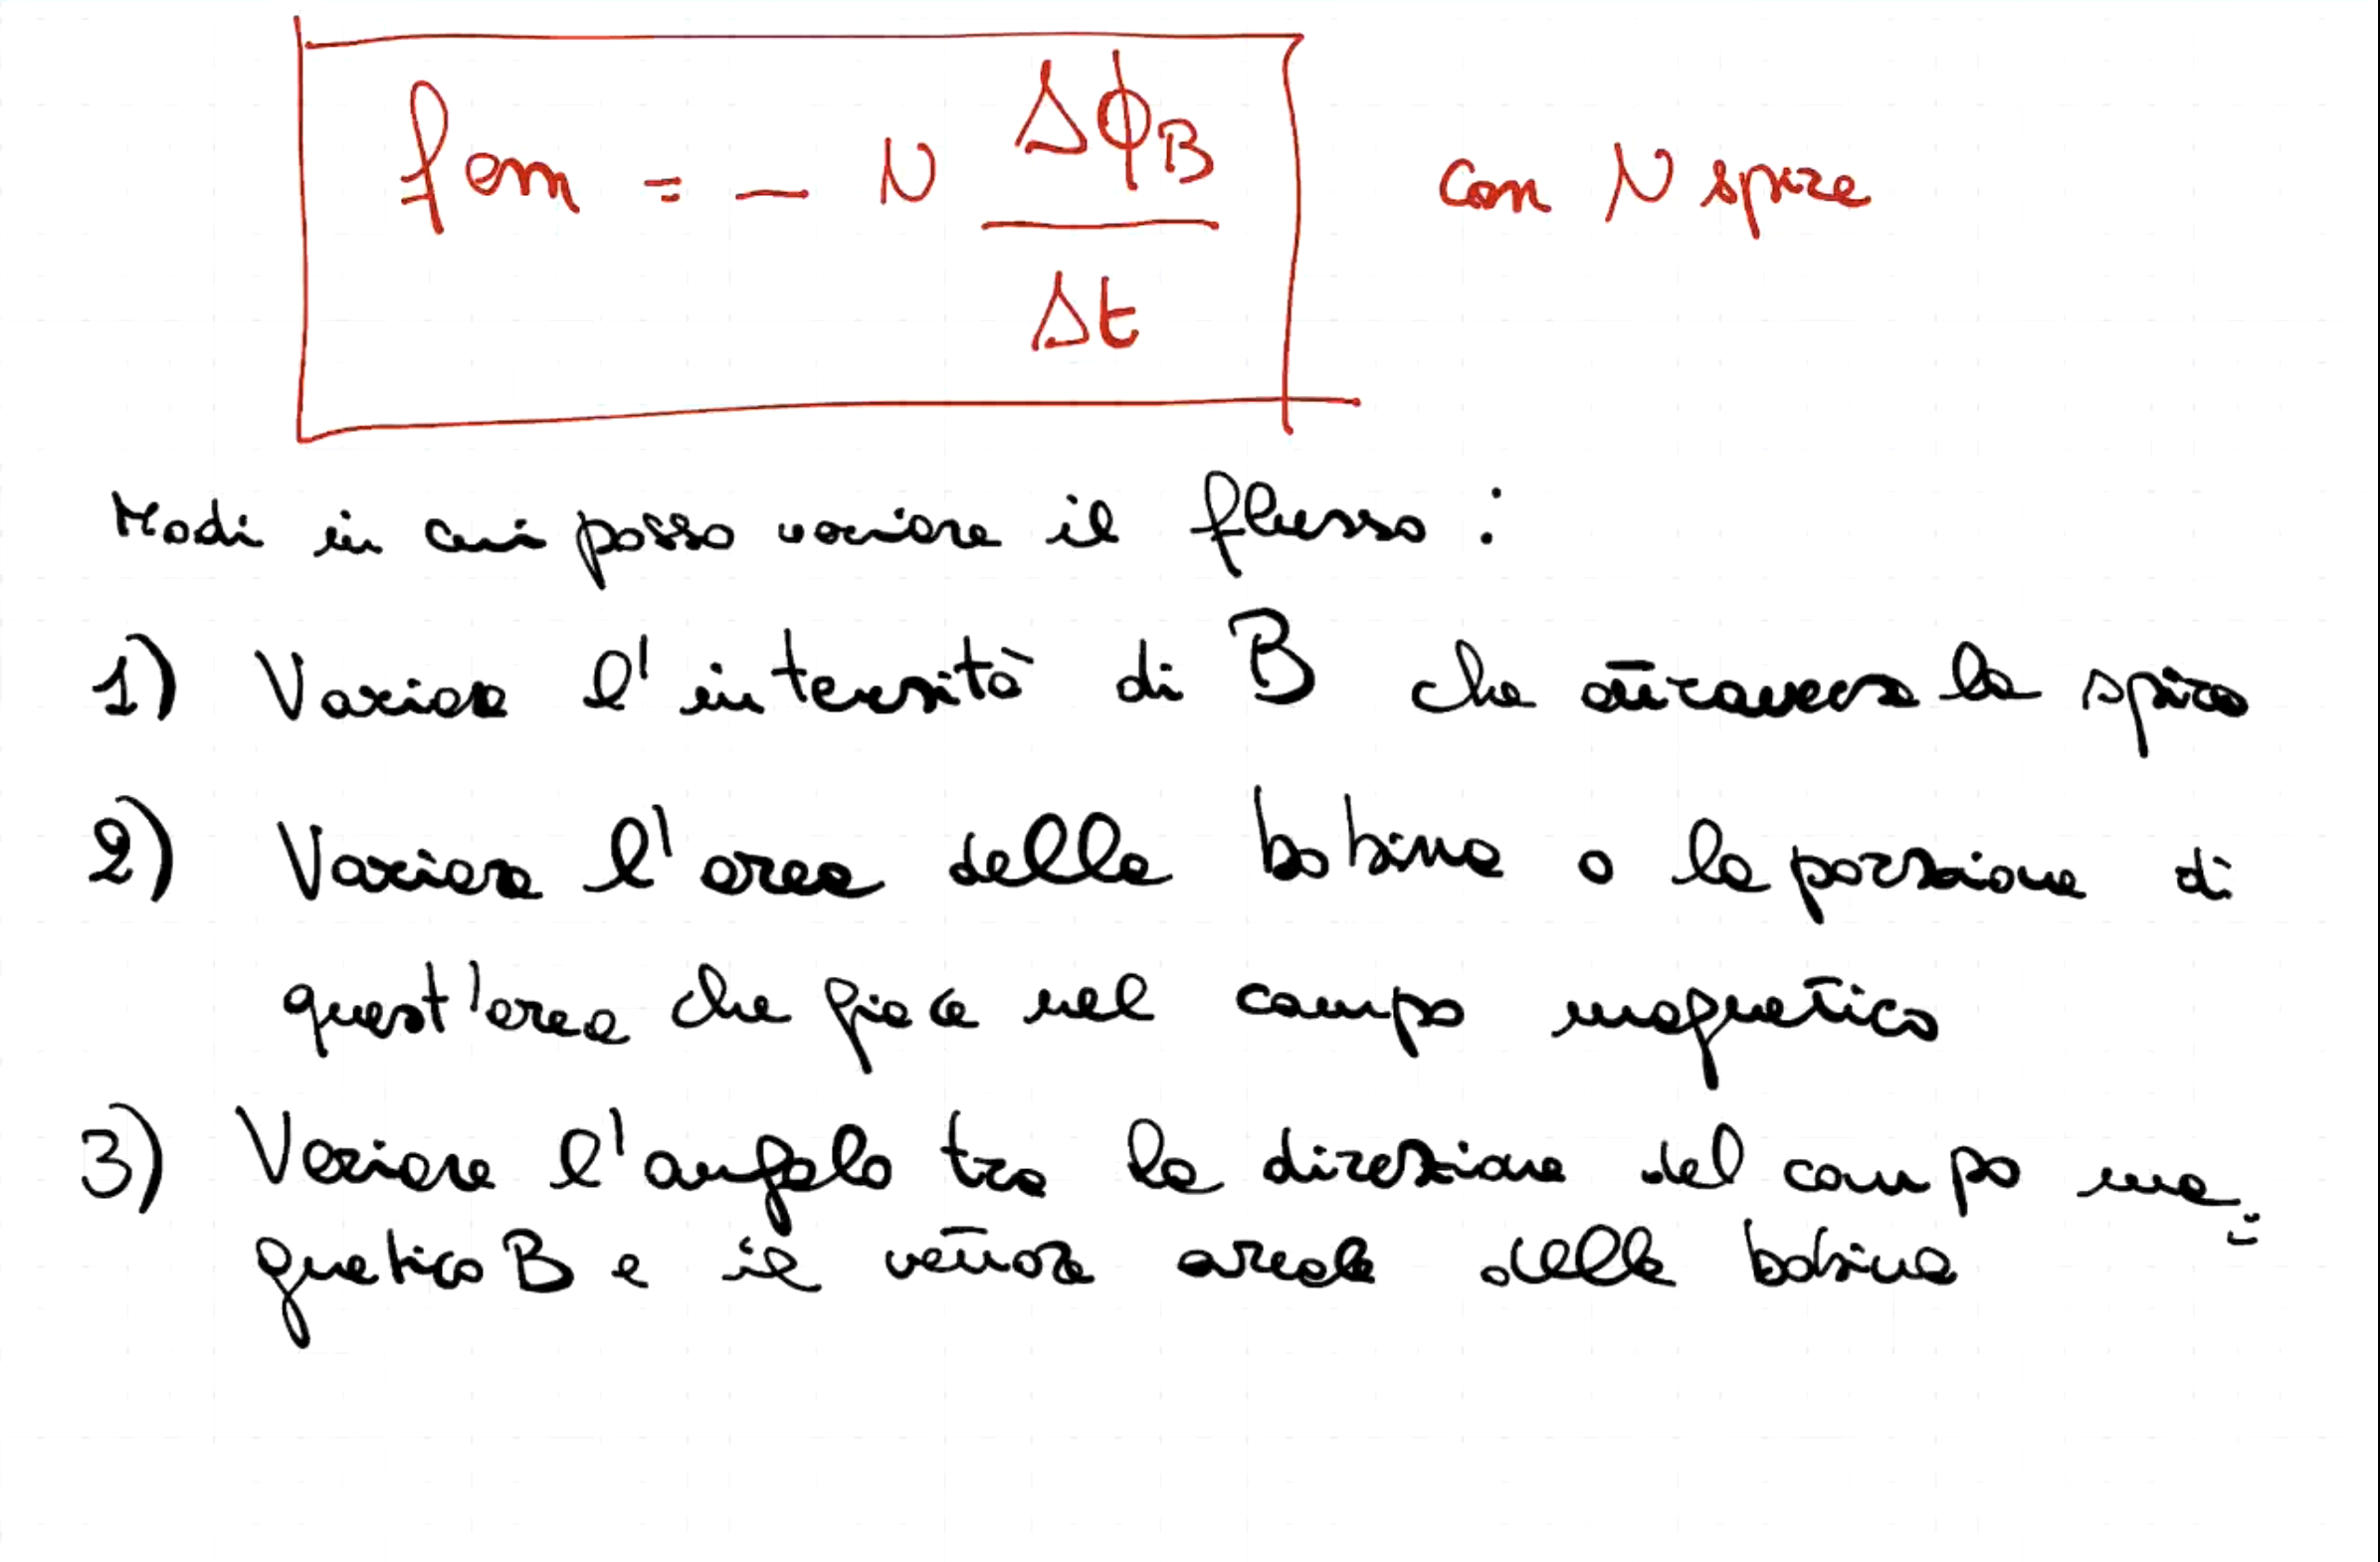 fem = - N ΔΦB / Δt con N spire
Modi in cui posso variare il flusso :
1) Variare l'intensità di B che attraversa la spira
2) Variare l'area della bobina o la porzione di
quest'area che giace nel campo magnetico
3) Variare l'angolo tra la direzione del campo ma=
gnetico B e il vettore areale della bobina